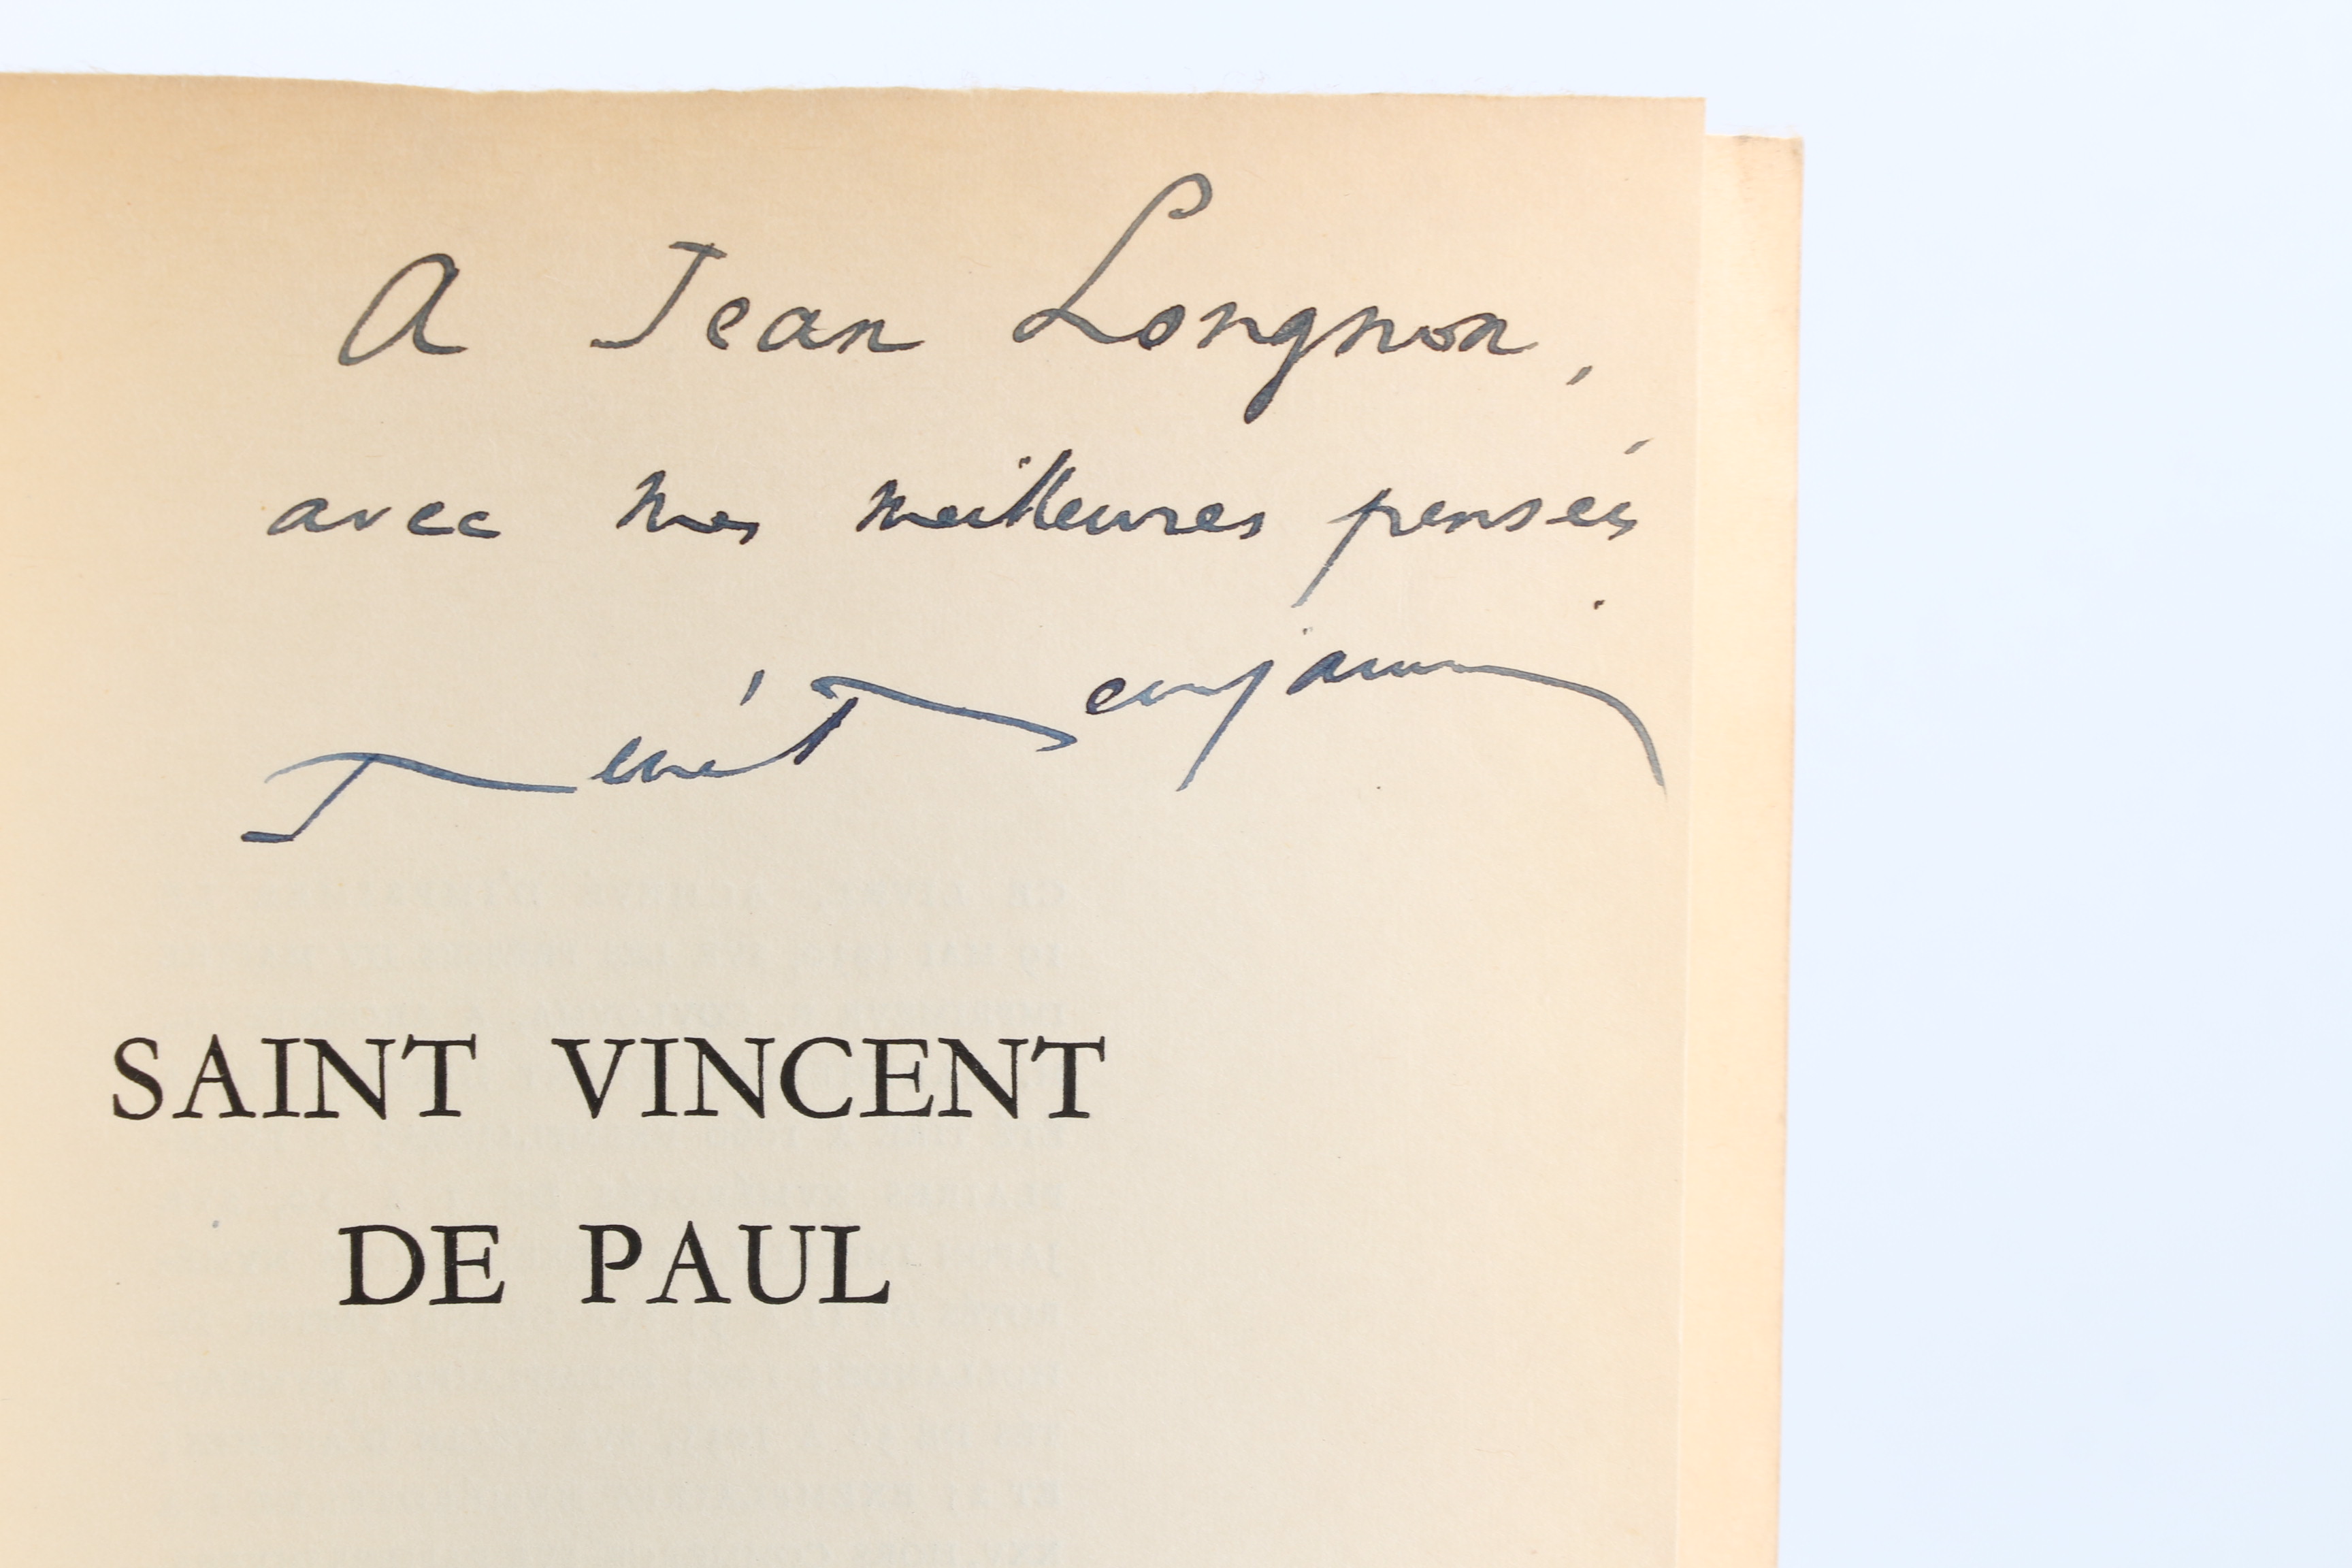 A Jean Longnon,
avec mes meilleures pensées
René Benjamin
SAINT VINCENT
DE PAUL